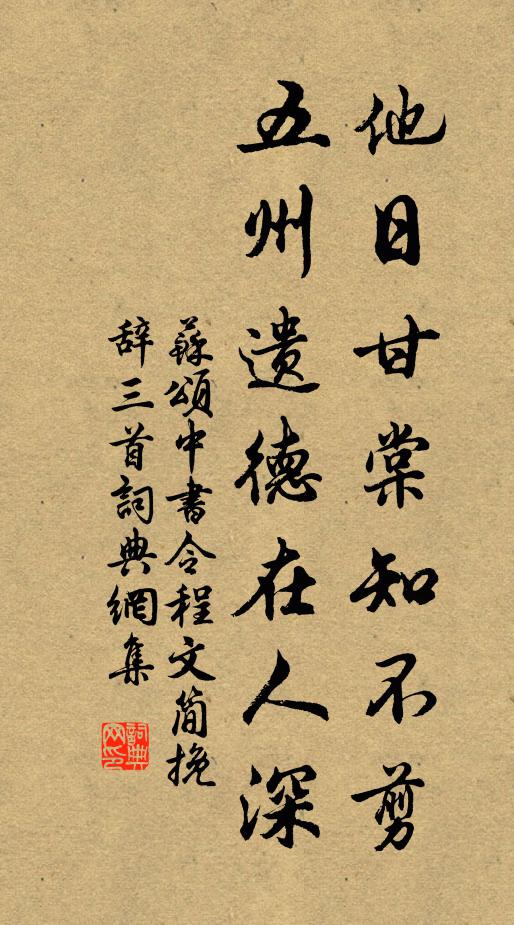 他日甘棠知不剪
五州遗德在人深
蘇頌中書令程文简挽
辞三首詞典網集
詞典网印